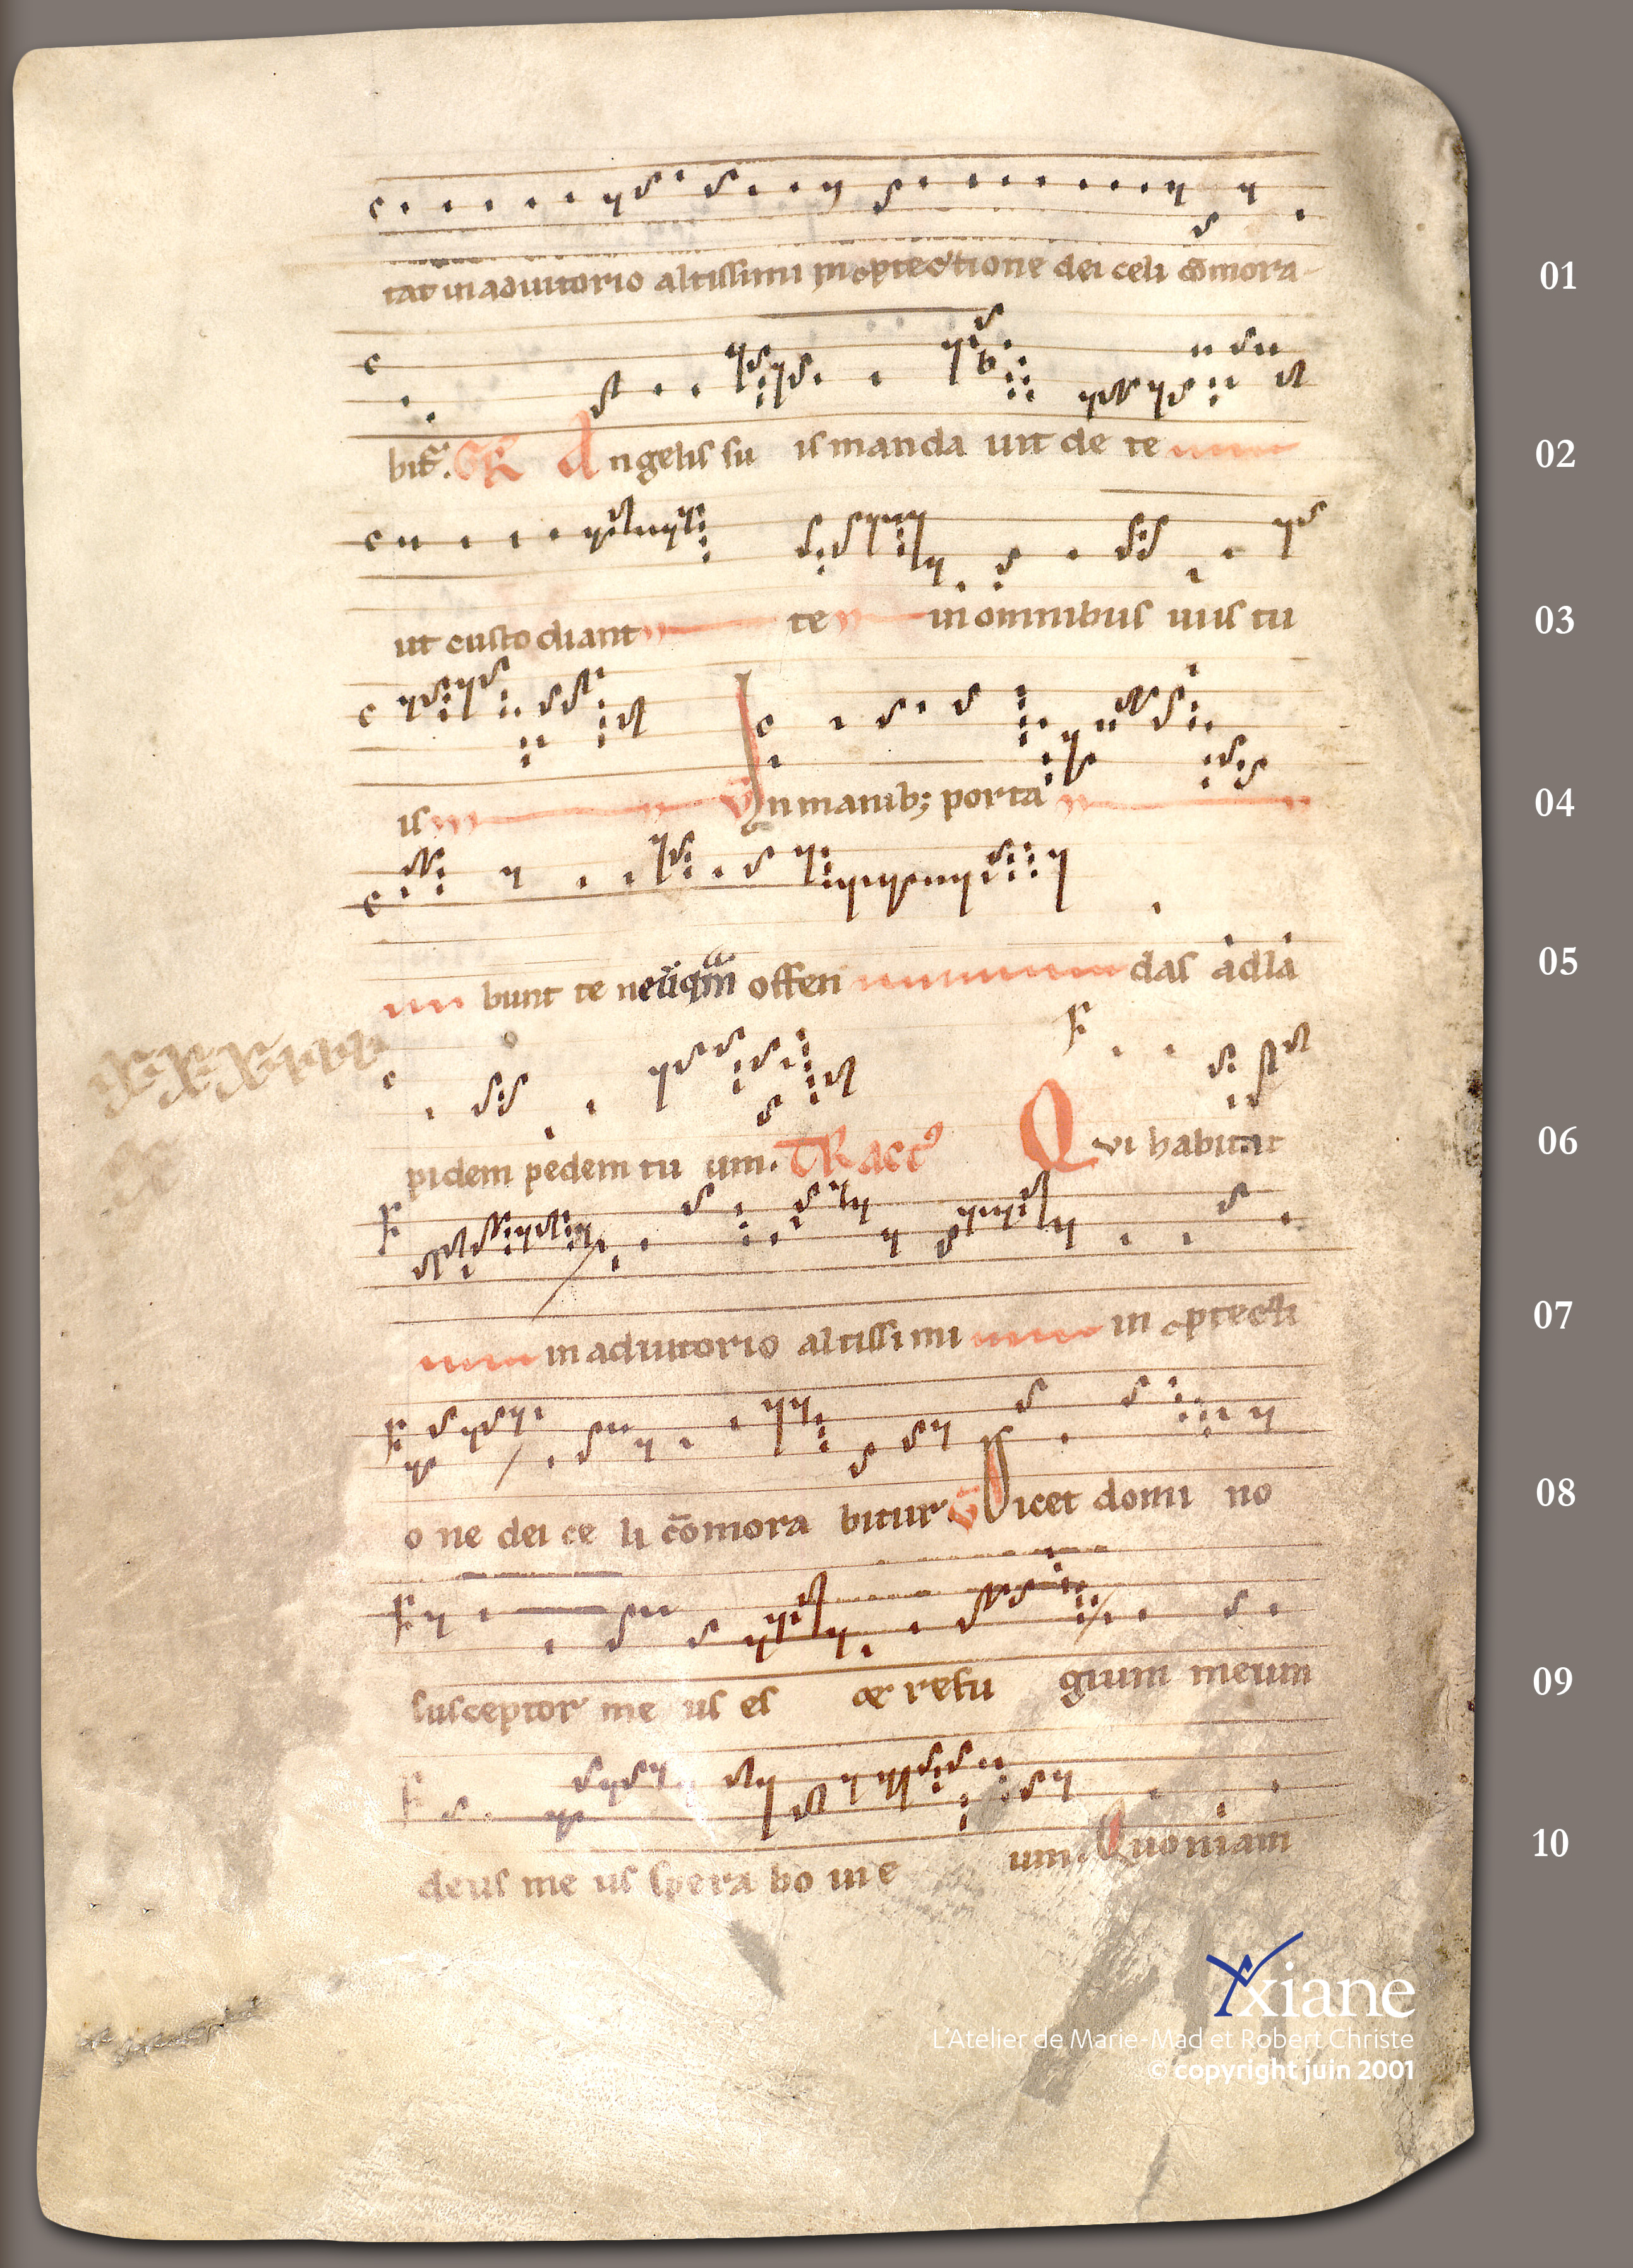 tat in adiutorio altissimi in ꝓtectione dei celi cōmora-
01
bit᷑. GR Angelis su is manda uit de te
02
ut custodiant te in omnibus uiis tu
03
is V̄ In manib; porta
04
bunt te ne offen das ad la
05
pidem pedem tu um. TRactꝰ Qvi habitat
06
in adiutorio altissimi in ꝓtecti
07
o ne dei ce li cōmora bitur V̄ Dicet domi no
08
susceptor me us es & refu gium meum
09
deus me us spera bo in e um. Quoniam
10
Xxiane
L'Atelier de Marie-Mad et Robert Christe
© copyright juin 2001